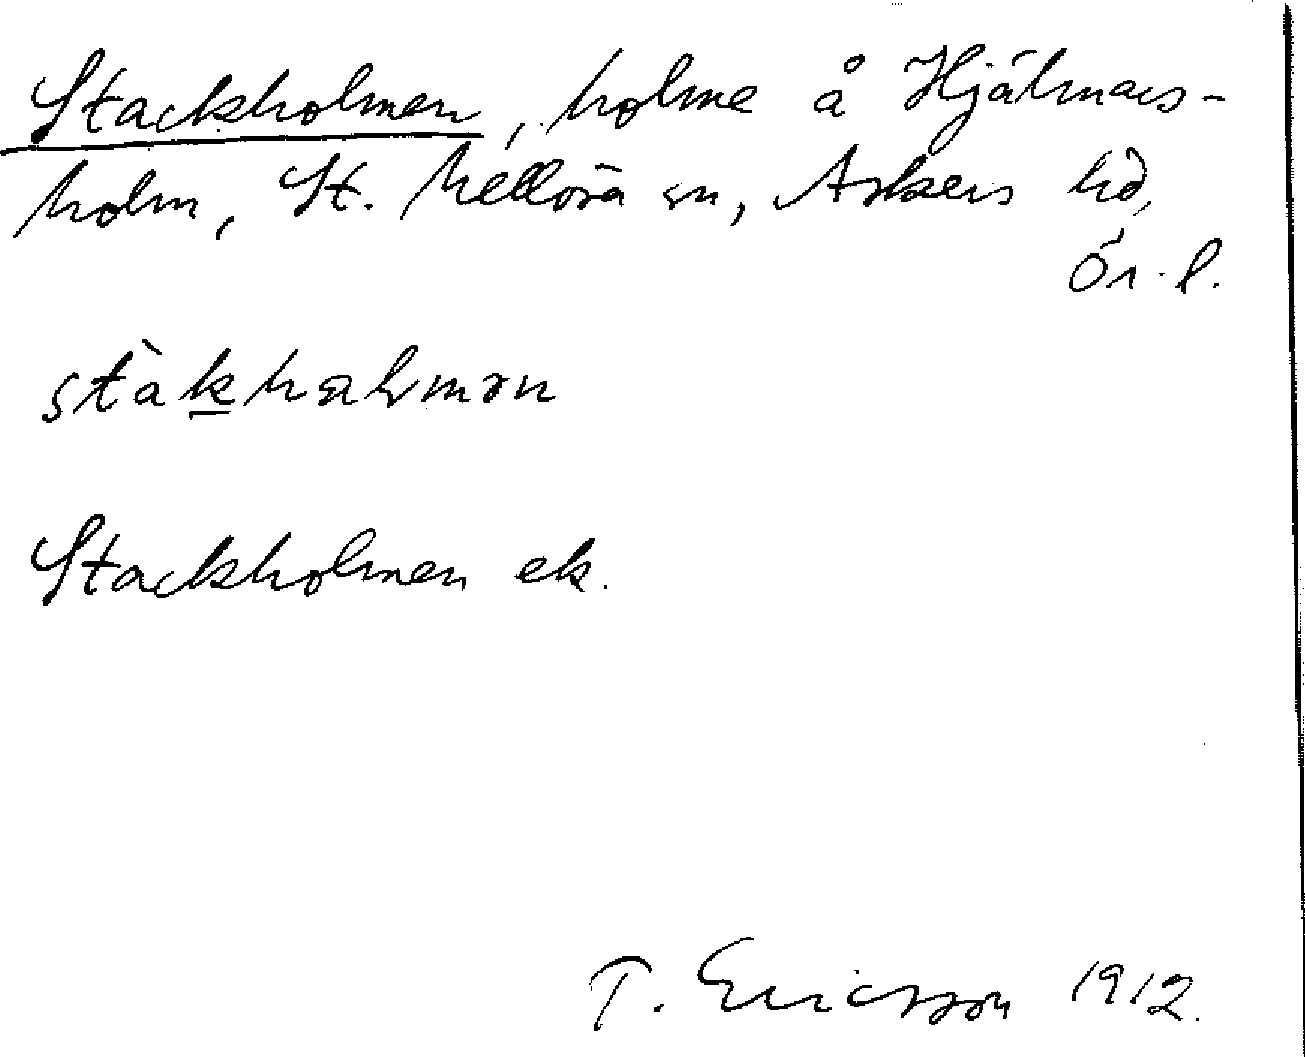 Stackholmen, holme å Hjälmars-
holm, St. Mellösa sn, Askers hd,
Ör. l.
Stackholmen ek.
T. Ericsson 1912.